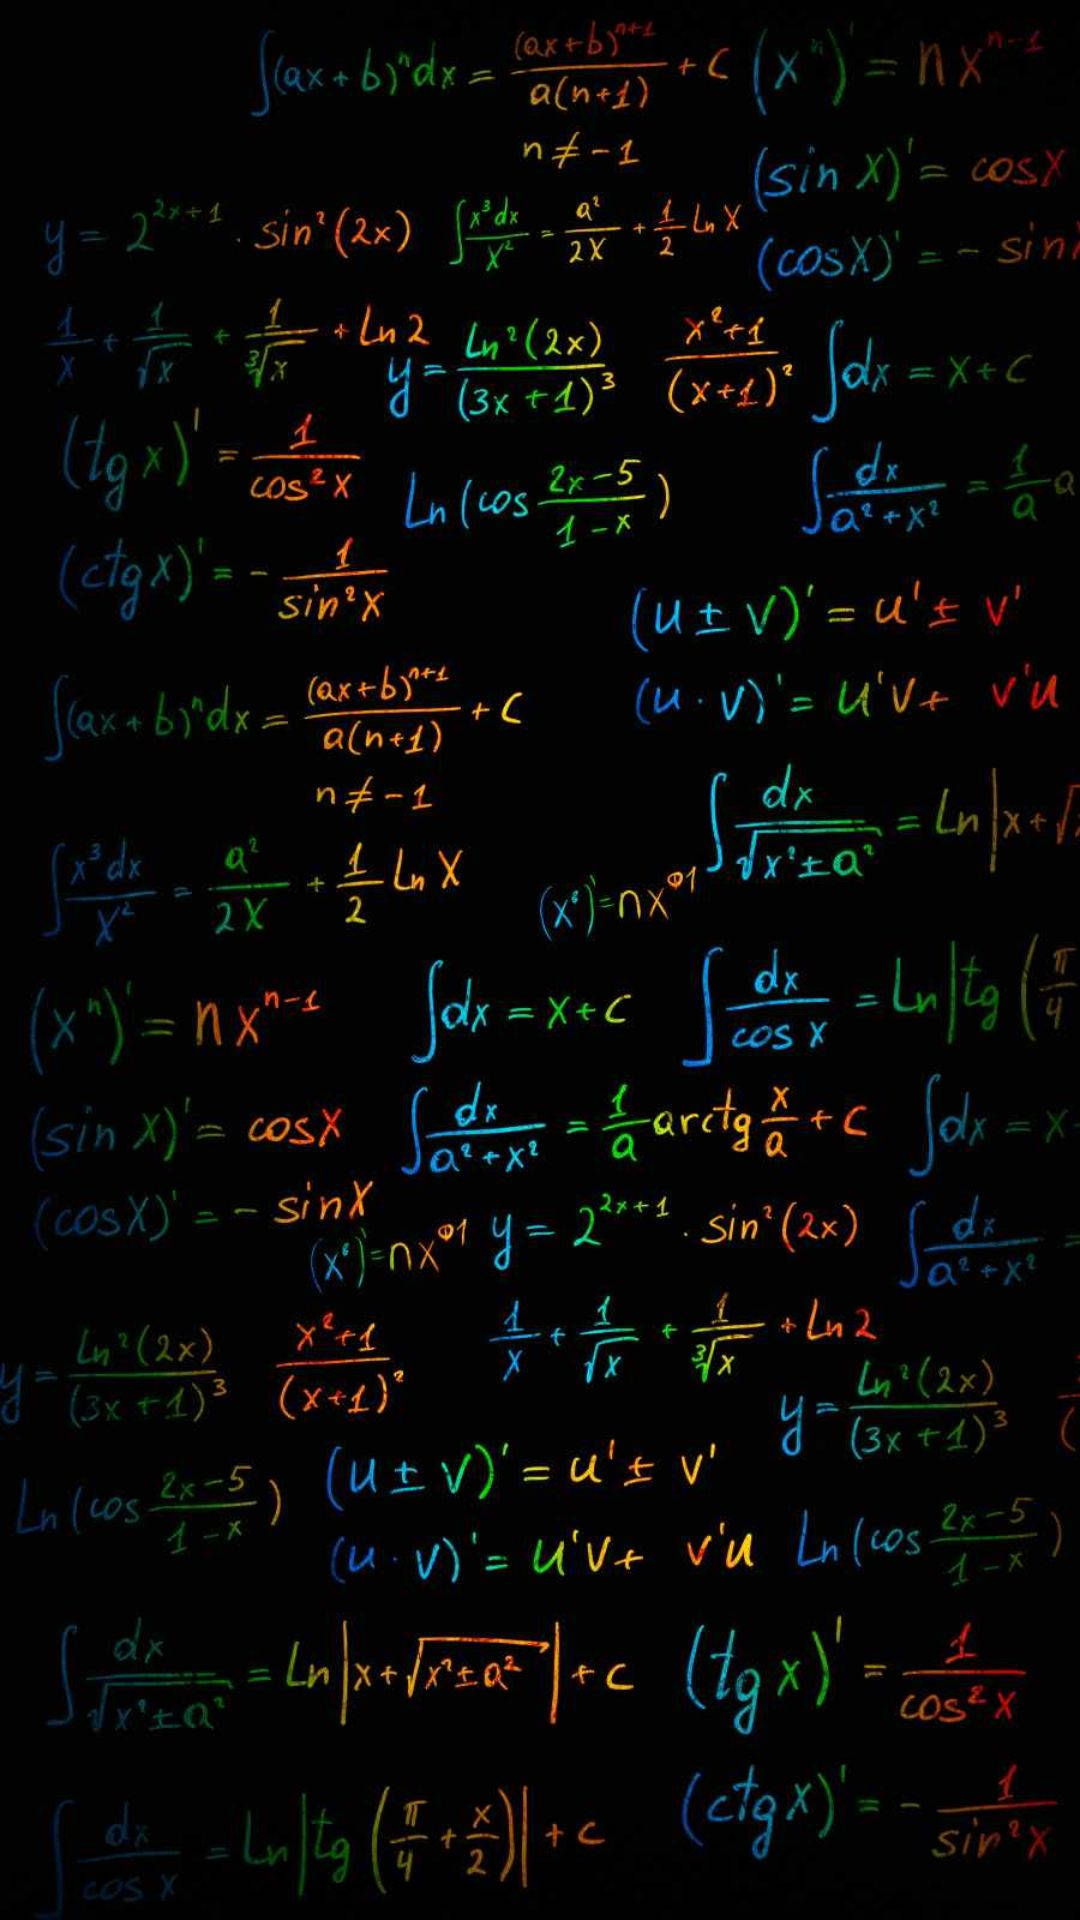 ∫(ax+b)ⁿdx = (ax+b)ⁿ⁺¹/a(n+1) + C
n ≠ -1
(xⁿ)' = nxⁿ⁻¹
(sin x)' = cosx
(cosx)' = - sin
y = 2²ˣ⁺¹ · sin²(2x)
∫x³dx/x² = a²/2x + 1/2 Ln x
1/x + 1/√x + 1/∛x + Ln2
y = Ln²(2x)/(3x+1)³
x²+1/(x+1)²
∫dx = x+c
(tg x)' = 1/cos²x
Ln(cos 2x-5/1-x)
∫dx/a²+x² = 1/a a
(ctg x)' = - 1/sin²x
(u ± v)' = u' ± v'
(u · v)' = u'v + v'u
∫(ax+b)ⁿdx = (ax+b)ⁿ⁺¹/a(n+1) + C
n ≠ -1
∫dx/√x²±a² = Ln|x+√
∫x³dx/x² = a²/2x + 1/2 Ln x
nx
(xⁿ)' = nxⁿ⁻¹
∫dx = x+c
∫dx/cos x = Ln|tg(π/4
(sin x)' = cosx
∫dx/a²+x² = 1/a arctg x/a + c
∫dx = x
(cosx)' = - sinx
nx
y = 2²ˣ⁺¹ · sin²(2x)
∫dx/a²+x² =
y = Ln²(2x)/(3x+1)³
x²+1/(x+1)²
1/x + 1/√x + 1/∛x + Ln2
y = Ln²(2x)/(3x+1)³
Ln(cos 2x-5/1-x)
(u ± v)' = u' ± v'
(u · v)' = u'v + v'u
Ln(cos 2x-5/1-x)
∫dx/√x²±a² = Ln|x+√x²±a²| + c
(tg x)' = 1/cos²x
∫dx/cos x = Ln|tg(π/4 + x/2)| + c
(ctg x)' = - 1/sin²x